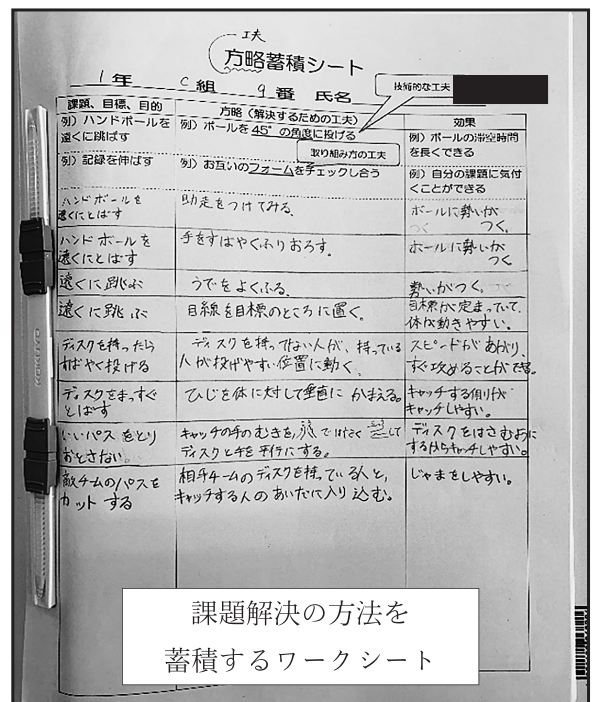 工夫
方略蓄積シート
1年 C組 9番 氏名
技術的な工夫
課題、目標、目的
方略(解決するための工夫)
効果
例)ハンドボールを
遠くに跳ばす
例)ボールを45°の角度に投げる
例)ボールの滞空時間
を長くできる
取り組み方の工夫
例)記録を伸ばす
例)お互いのフォームをチェックし合う
例)自分の課題に気付
くことができる
ハンドボールを
遠くにとばす
助走をつけてみる。
ボールに勢いが
つく。
ハンドボールを
遠くにとばす
手をすばやくふりおろす。
ボールに勢いが
つく
遠くに跳ぶ
うでをよくふる。
勢いがつく。
遠くに跳ぶ
目線を目標のところに置く。
目標が定まっていて、
体が動きやすい。
ディスクを持ったら
すばやく投げる
ディスクを持ってない人が、持っている
人が投げやすい位置に動く。
スピードがあがり、
すぐ攻めることができる。
ディスクをまっすぐ
とばす
ひじを体に対して垂直にかまえる。
キャッチする側が
キャッチしやすい。
いいパスをとり
おとさない。
キャッチの手のむきを ではなく して
ディスクと手を平行にする。
ディスクをはさむように
するからキャッチしやすい。
敵チームのパスを
カットする
相手チームのディスクを持っている人と、
キャッチする人のあいだに入り込む。
じゃまをしやすい。
課題解決の方法を
蓄積するワークシート